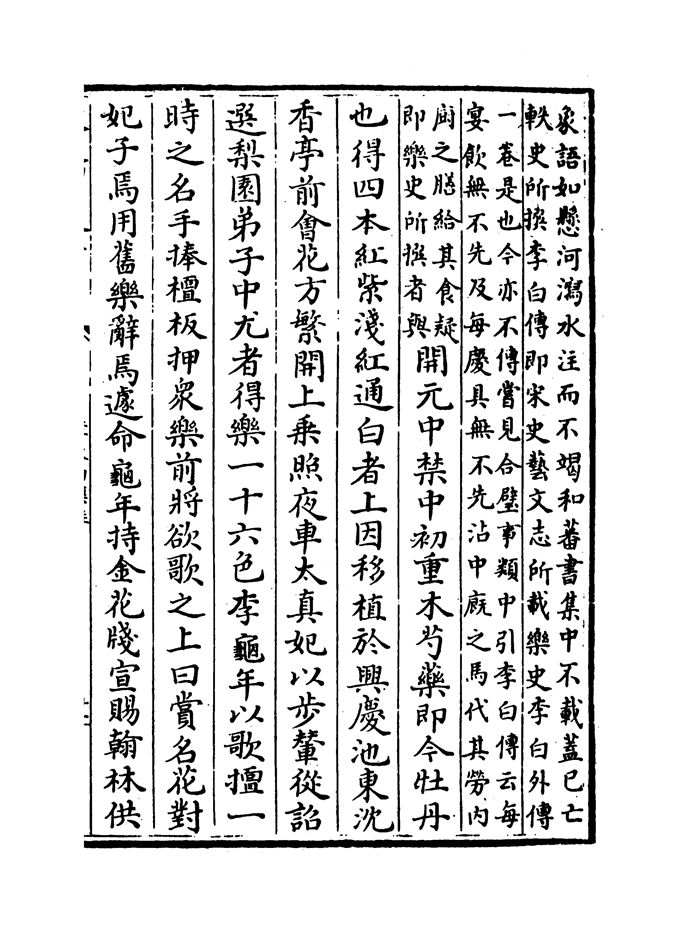 象語如懸河瀉水注而不竭和蕃書集中不載蓋已亡
軼史所撰李白傳即宋史藝文志所載樂史李白外傳
一卷是也今亦不傳嘗見合璧事類中引李白傳云每
宴飲無不先及每慶具無不先沾中廐之馬代其勞内
厨之膳給其食疑
即樂史所撰者歟
開元中禁中初重木芍藥即今牡丹
也得四本紅紫淺紅通白者上因移植於興慶池東沈
香亭前會花方繁開上乗照夜車太真妃以步輦從詔
選梨園弟子中尤者得樂一十六色李龜年以歌擅一
時之名手捧檀板押衆樂前將欲歌之上曰賞名花對
妃子焉用舊樂辭焉遽命龜年持金花牋宣賜翰林供